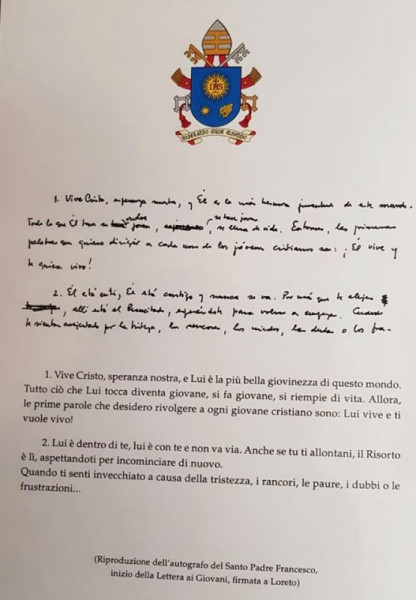 IHS
MISERANDO ATQUE ELIGENDO
1. Vive Cristo, esperanza nuestra, y Él es la más hermosa juventud de este mundo.
Todo lo que Él toca se joven, se llena de vida. Entonces, las primeras
palabras que quiero dirigir a cada uno de los jóvenes cristianos son: ¡Él vive y
te quiere vivo!
2. Él está en ti, Él está contigo y nunca se va. Por más que te alejes
, allí está el Resucitado, esperándote para volver a empezar. Cuando
te sientas avejentado por la tristeza, los rencores, los miedos, las dudas o los fra-
1. Vive Cristo, speranza nostra, e Lui è la più bella giovinezza di questo mondo.
Tutto ciò che Lui tocca diventa giovane, si fa giovane, si riempie di vita. Allora,
le prime parole che desidero rivolgere a ogni giovane cristiano sono: Lui vive e ti
vuole vivo!
2. Lui è dentro di te, lui è con te e non va via. Anche se tu ti allontani, il Risorto
è lì, aspettandoti per incominciare di nuovo.
Quando ti senti invecchiato a causa della tristezza, i rancori, le paure, i dubbi o le
frustrazioni...
(Riproduzione dell'autografo del Santo Padre Francesco,
inizio della Lettera ai Giovani, firmata a Loreto)